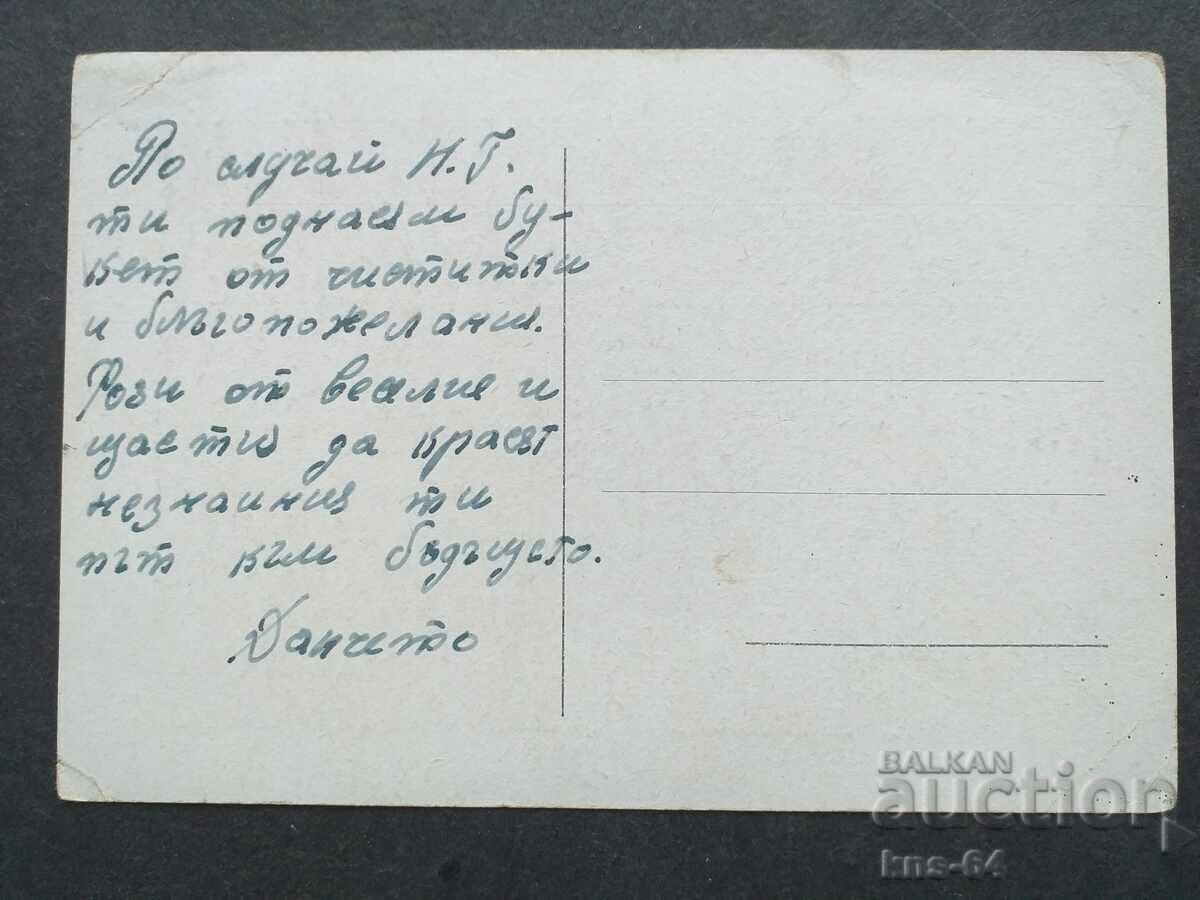 По случай Н.Г.
ти поднасям бу-
кет от чиститки
и благопожелания.
Рози от веселие и
щастие да красят
незнайния ти
път към бъдъщето.
Данчето
BALKAN
auction
kns-64